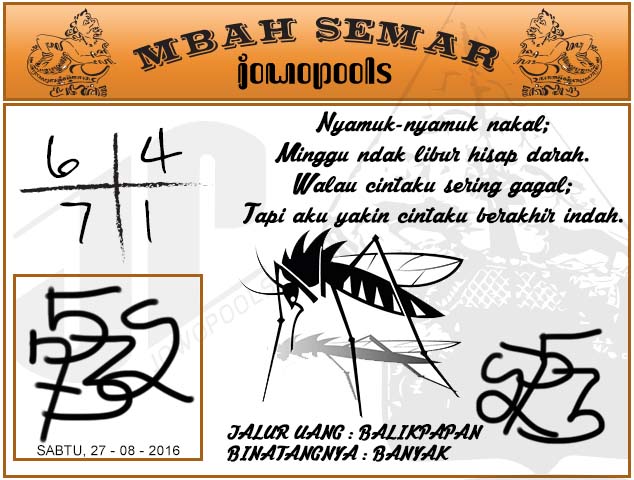 MBAH SEMAR
jowopools
6 4
7 1
Nyamuk-nyamuk nakal;
Minggu ndak libur hisap darah.
Walau cintaku sering gagal;
Tapi aku yakin cintaku berakhir indah.
SABTU, 27 - 08 - 2016
JALUR UANG : BALIKPAPAN
BINATANGNYA : BANYAK